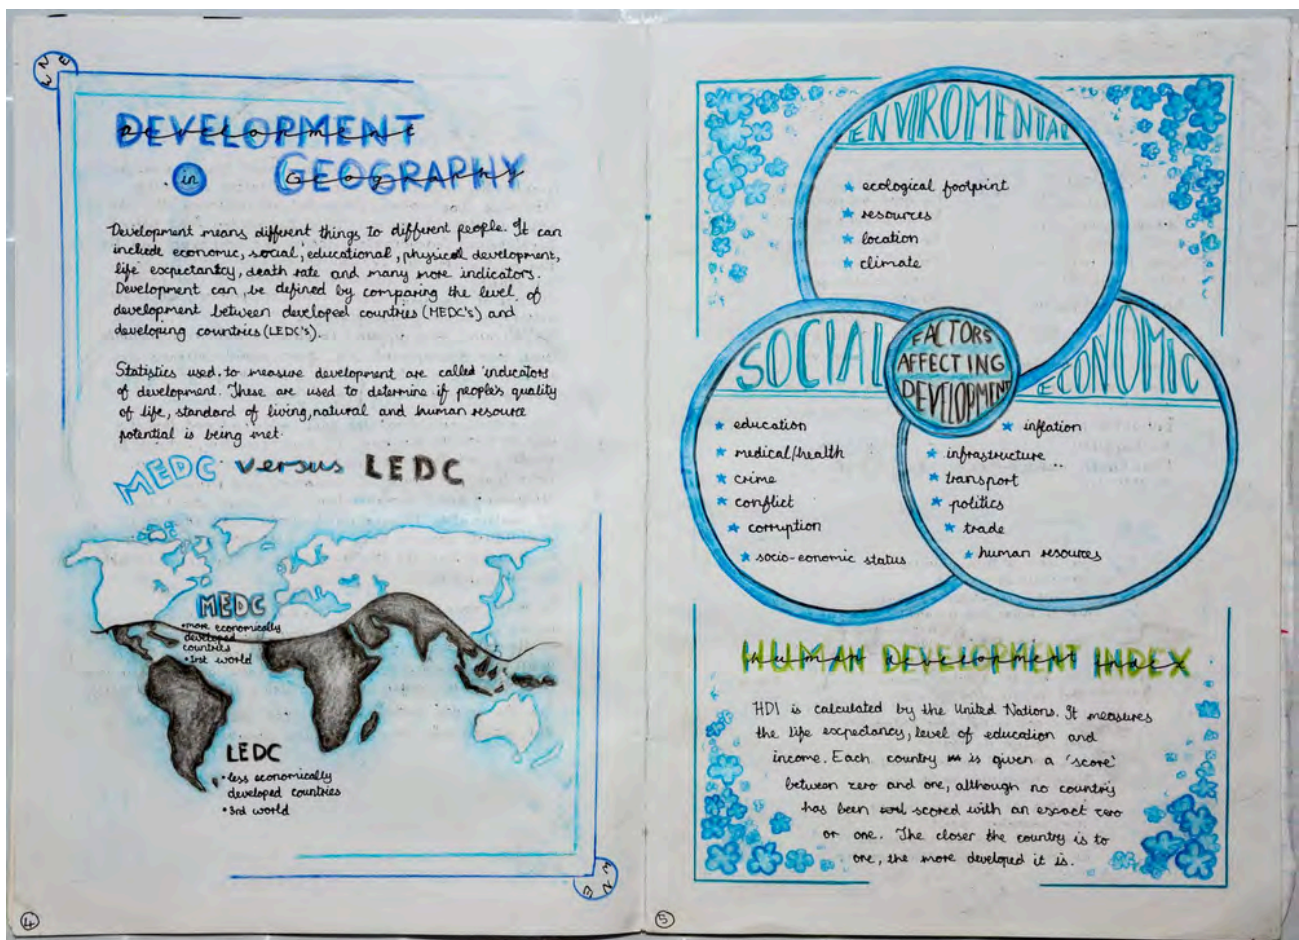 DEVELOPMENT
in GEOGRAPHY
Development means different things to different people. It can
include economic, social, educational, physical development,
life expectantcy, death rate and many more indicators.
Development can be defined by comparing the level of
development between developed countries (MEDC's) and
developing countries (LEDC's).
Statistics used to measure development are called indicators
of development. These are used to determine if people's quality
of life, standard of living, natural and human resource
potential is being met.
MEDC versus LEDC
MEDC
• more economically
developed
countries
• 1rst world
LEDC
• less economically
developed countries
• 3rd world
4
ENVIROMENTAL
ecological footprint
resources
location
climate
FACTORS
AFFECTING
DEVELOPMENT
SOCIAL
education
medical/health
crime
conflict
corruption
socio-eonomic status
ECONOMIC
inflation
infrastructure
transport
politics
trade
human resources
HUMAN DEVELOPMENT INDEX
HDI is calculated by the United Nations. It measures
the life expectancy, level of education and
income. Each country is given a 'score'
between zero and one, although no country
has been scored with an exact zero
or one. The closer the country is to
one, the more developed it is.
5